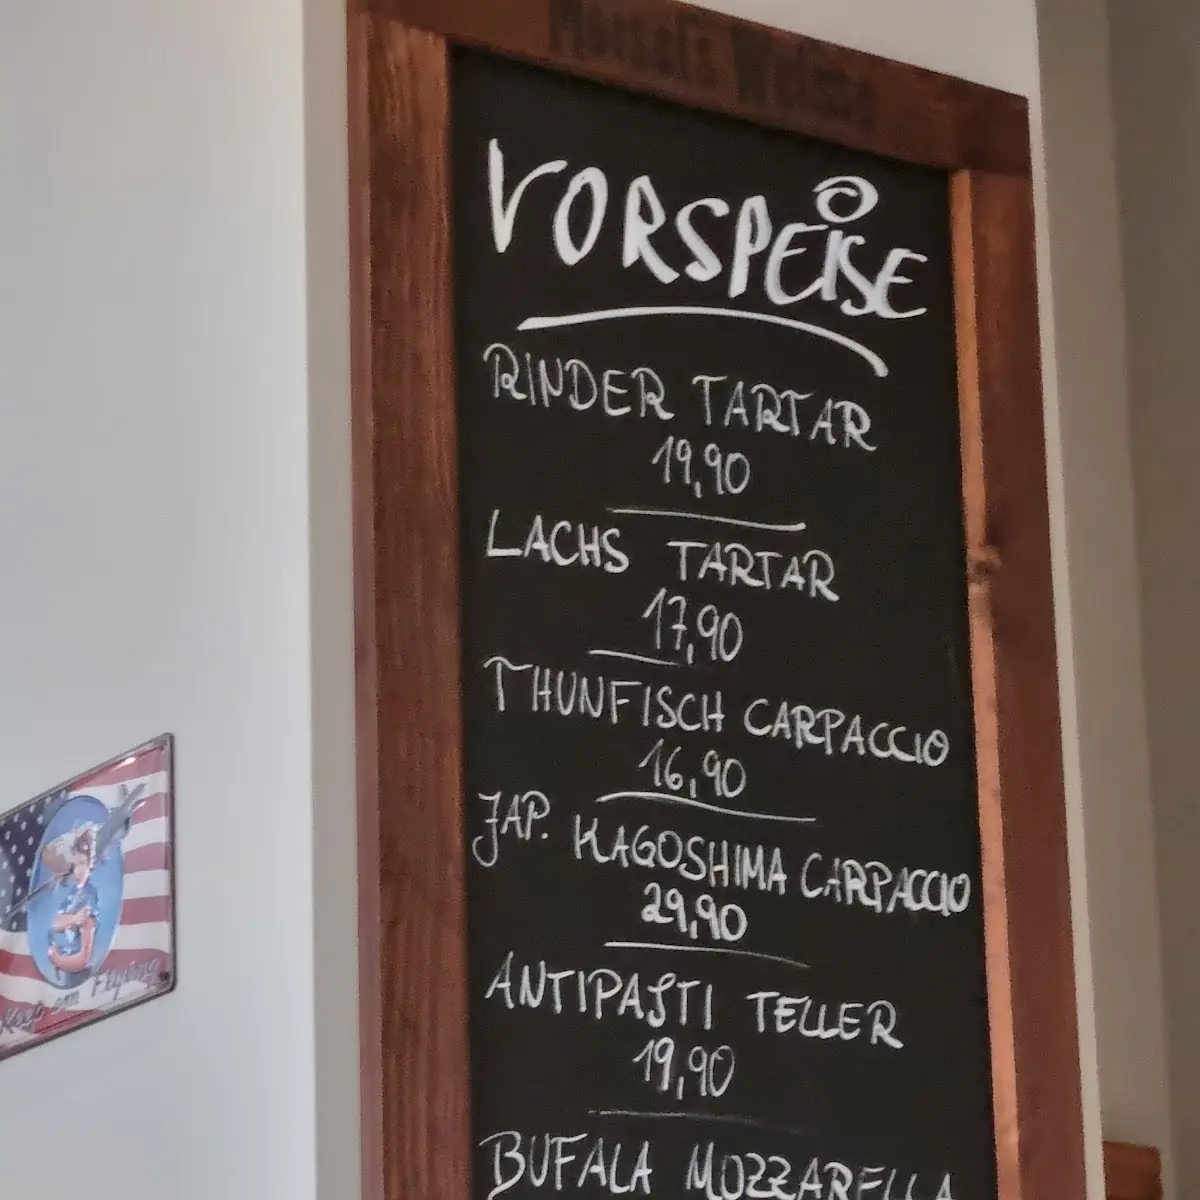 VORSPEISE
RINDER TARTAR
19,90
LACHS TARTAR
17,90
THUNFISCH CARPACCIO
16,90
JAP. KAGOSHIMA CARPACCIO
29,90
ANTIPASTI TELLER
19,90
BUFALA MOZZARELLA
Keep em Flying